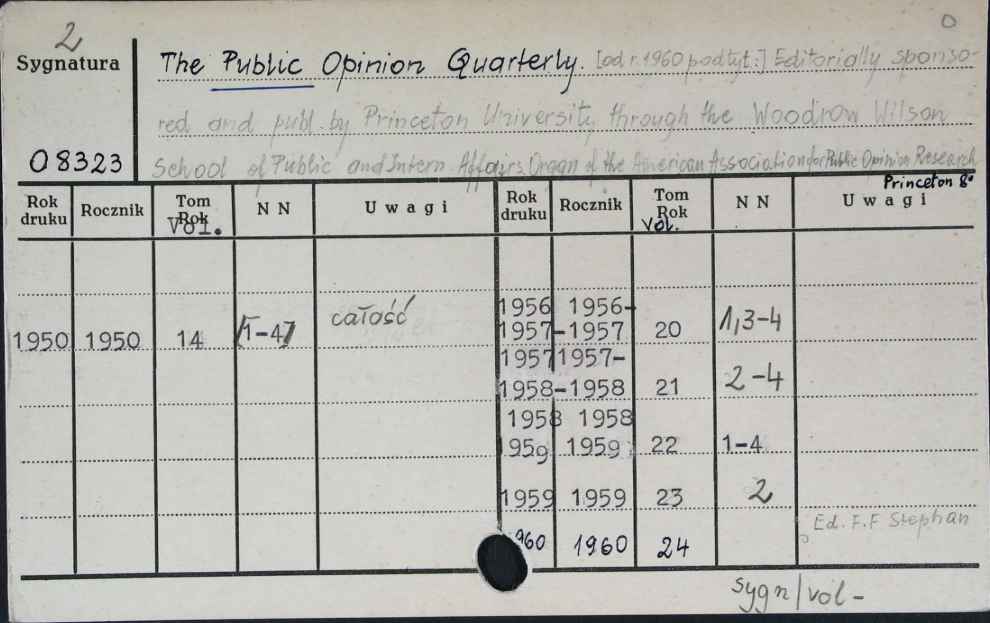 2
O
Sygnatura
The Public Opinion Quarterly. [od r. 1960 podtyt:] Editorially sponso-
red and publ. by Princeton University through the Woodrow Wilson
08323
School of Public and Intern. Affairs. Organ of the American Association for Public Opinion Research
Princeton 8°
Rok druku Rocznik Tom Rok Vol. N N Uwagi Rok druku Rocznik Tom Rok Vol. N N Uwagi
1956 1956-
1950 1950 14 [1-4] całość 1957-1957 20 1,3-4
1957 1957-
1958-1958 21 2-4
1958 1958
959 1959 22 1-4
1959 1959 23 2
Ed. F.F Stephan
960 1960 24
sygn/vol-